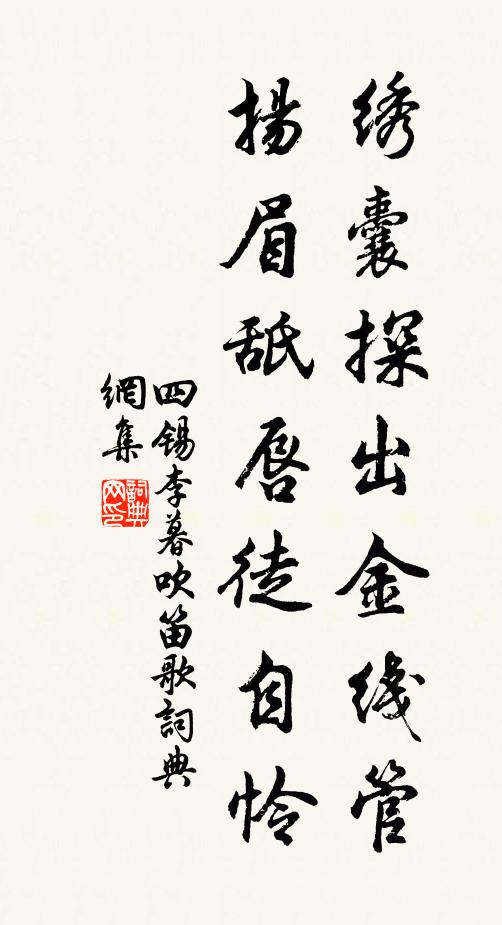 绣囊探出金线管
揚眉舐唇徒自怜
四锡李暮吹笛歌詞典
網集
詞典
网印